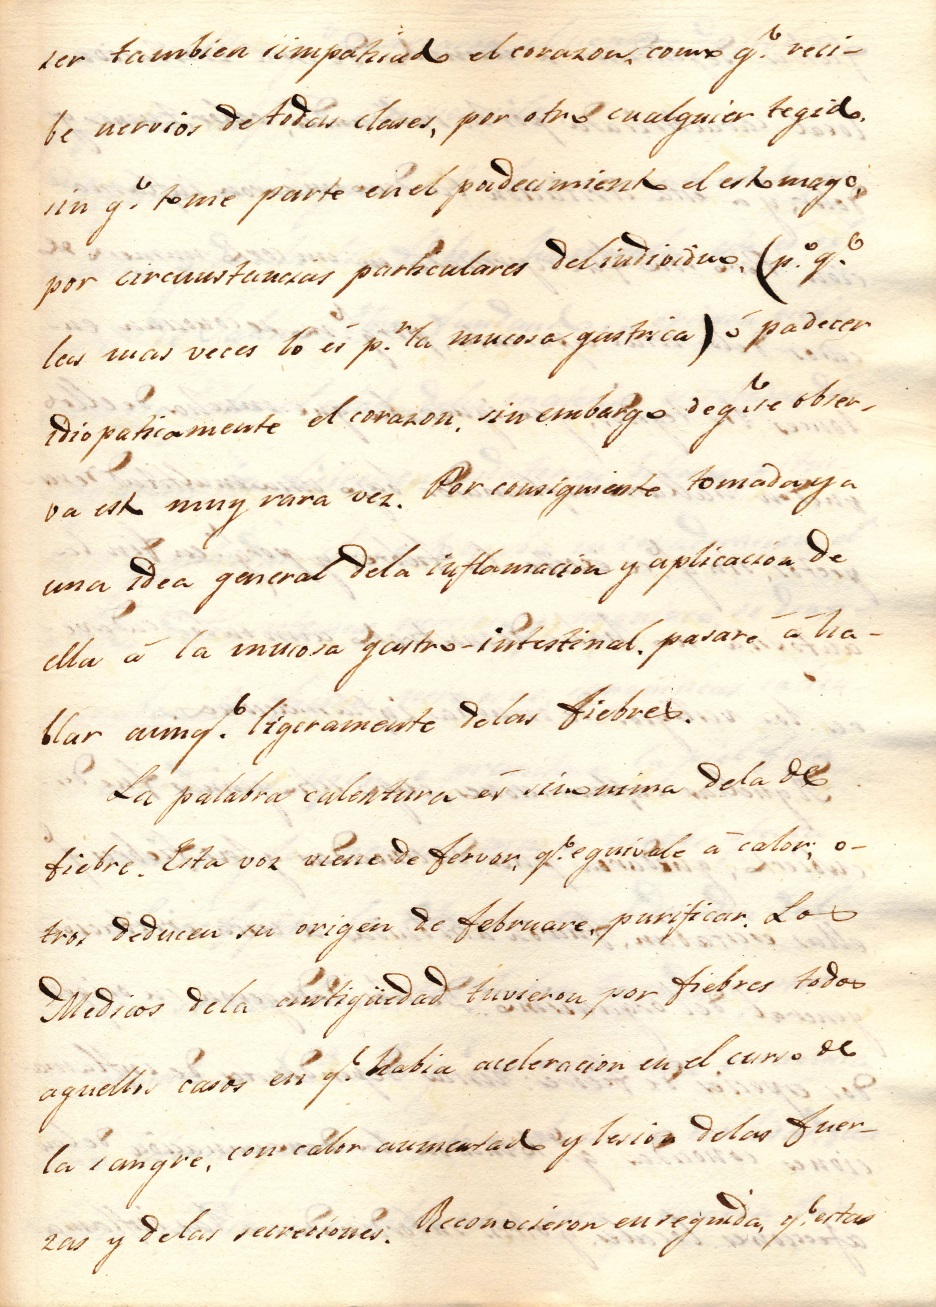 ser tambien simpatizado el corazon, como q.e reci-
be nervios de todas clases, por otro cualquier tegido,
sin q.e tome parte en el padecimiento el estomago,
por circunstancias particulares del individuo, (p.o q.e
las mas veces lo és p.r la mucosa gastrica) ó padecer
idiopaticamente el corazon, sin embargo de q.e se obser-
va esto muy rara vez. Por consiguiente tomada ya
una idea general dela inflamacion y aplicacion de
ella á la mucosa gastro-intestinal, pasaré á ha-
blar aunq.e ligeramente delas fiebres.
La palabra calentura és sinonima dela de
fiebre. Esta voz viene de fervor, q.e equivale á calor; o-
tros deducen su origen de februare, purificar. Los
Medicos dela antigüedad tuvieron por fiebres todos
aquellos casos en q.e habia aceleracion en el curso de
la sangre, con calor aumentado y lesion delas fuer-
zas y delas secreciones. Reconocieron en seguida, q.e estas